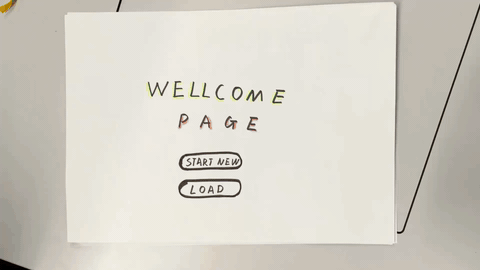 WELLCOME
PAGE
START NEW
LOAD